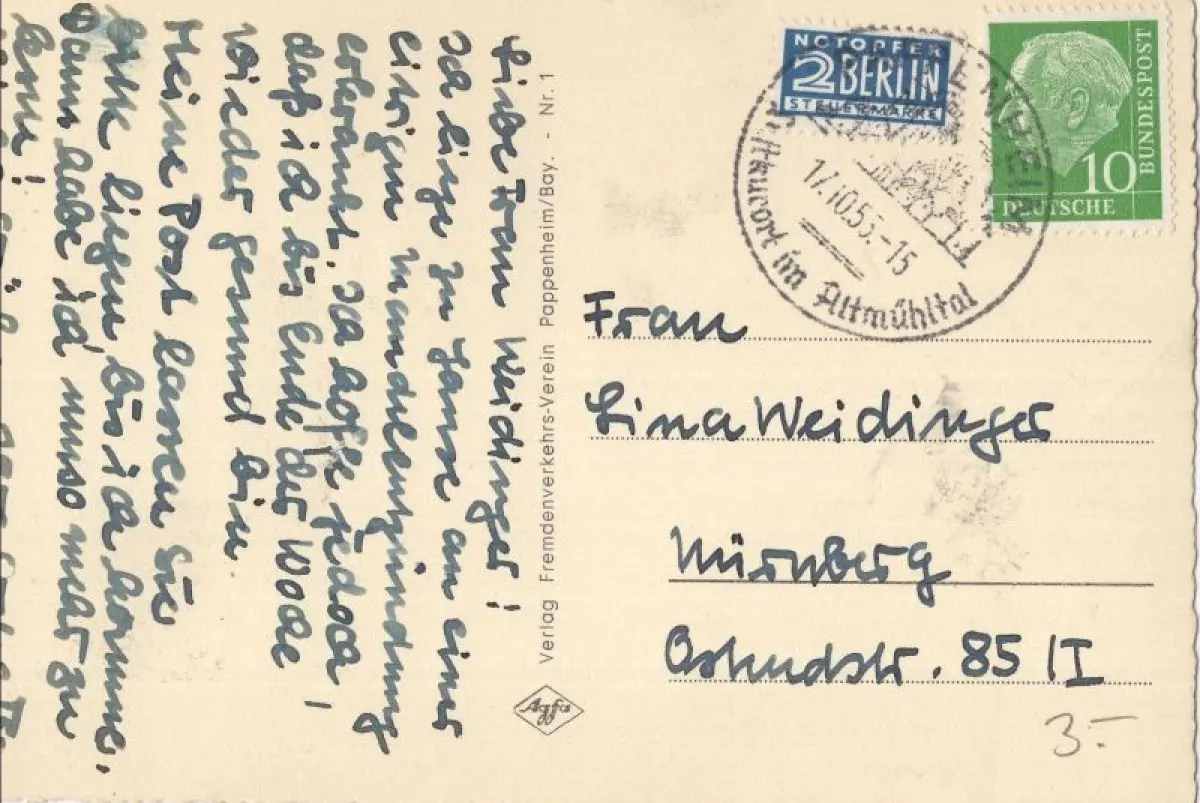 Liebe Frau Weidinger!
Ich liege zu Hause an einer
eitrigen Mandelentzündung
erkrankt. Ich hoffe jedoch,
daß ich bis Ende der Woche
wieder gesund bin.
Meine Post lassen Sie
bitte liegen bis ich komme.
Dann habe ich zu
Verlag Fremdenverkehrs-Verein Pappenheim/Bay. - Nr. 1
Agfa
NOTOPFER
2 BERLIN
STEUERMARKE
10
DEUTSCHE
BUNDESPOST
17.10.55.-15
Luftkurort im Altmühltal
Frau
Lina Weidinger
Nürnberg
Ostendstr. 85 / I
3.-